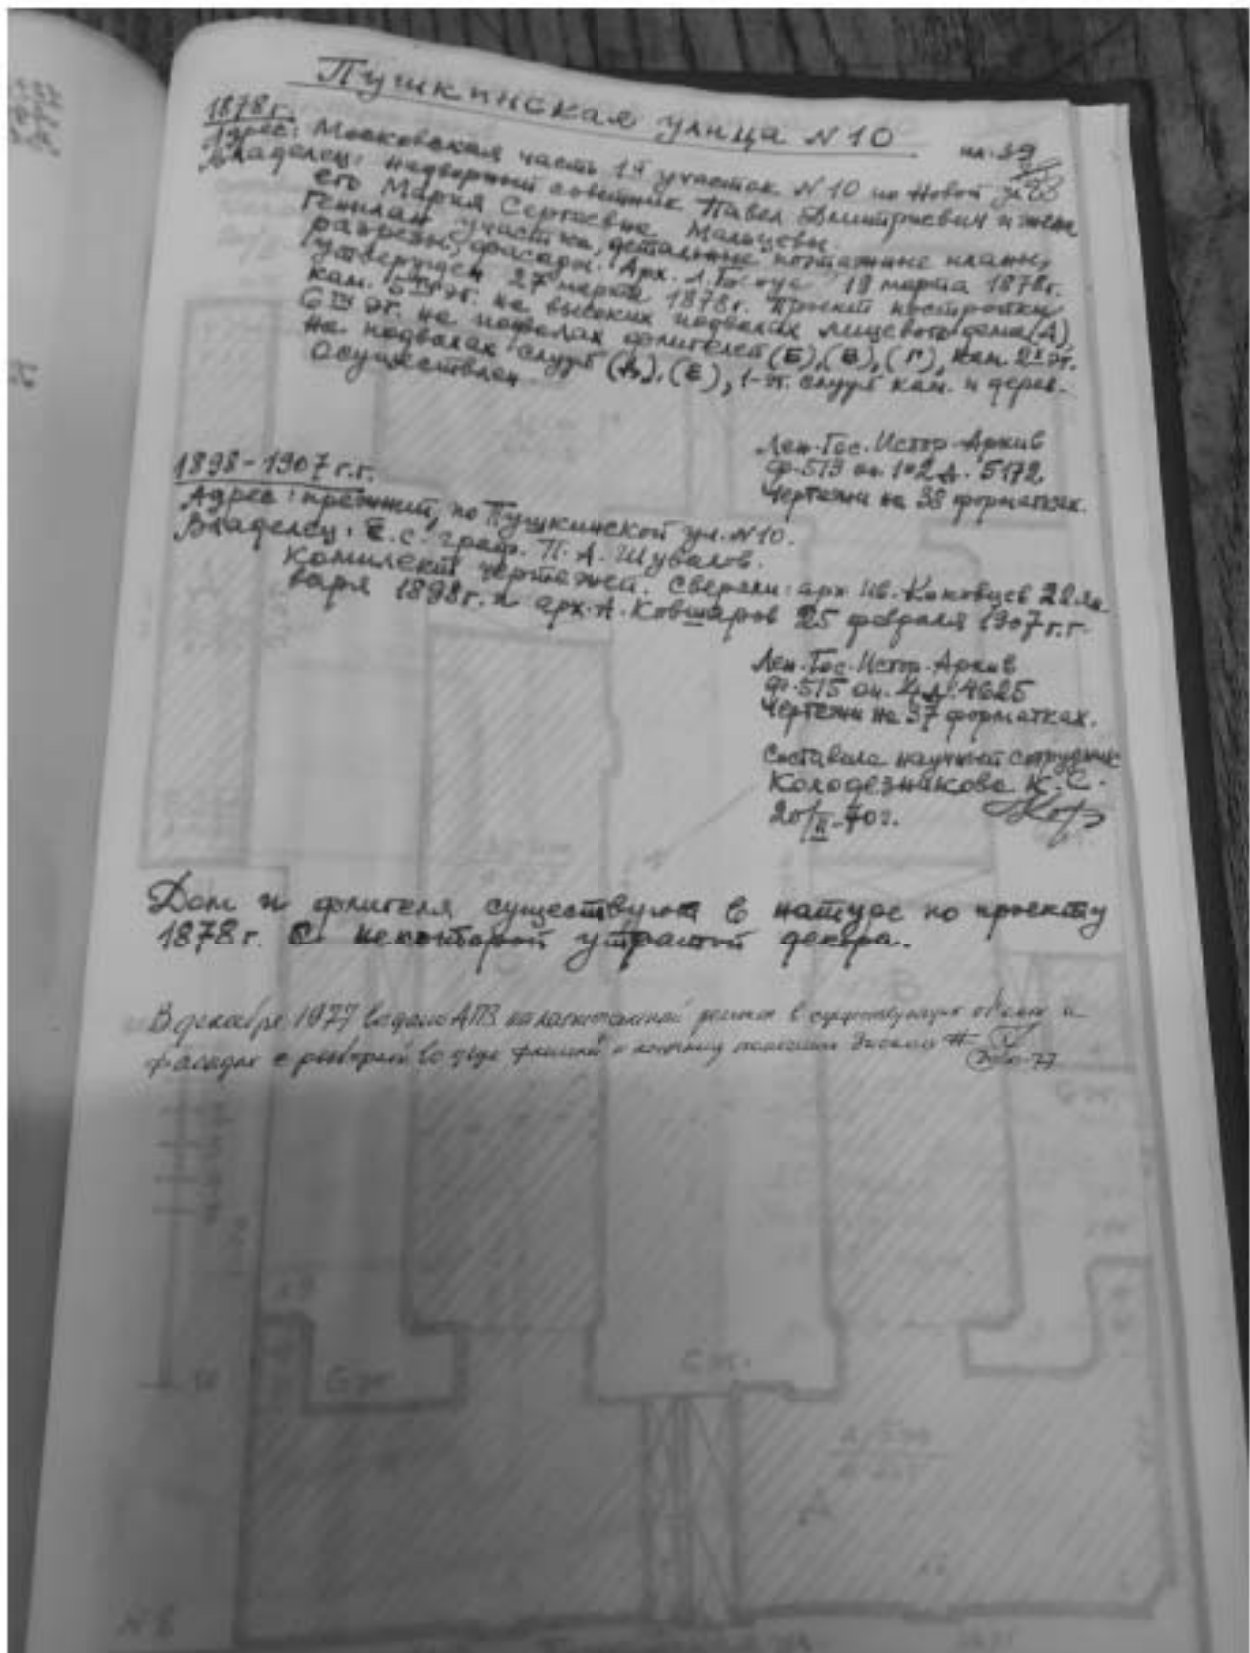 Пушкинская улица №10
1878г.
Адрес: Московская часть 1й участок №10 по Новой ул
Владелец: надворный советник Павел Дмитриевич и жена
его Мария Сергеевна Мальцевы.
Генплан участка, детальные поэтажные планы,
разрезы, фасады. Арх. 19 марта 1878г.
Утвержден 27 марта 1878г. Проект постройки
кам. 5 эт. на высоких подвалах лицевого дома (А),
6 эт. на подвалах флигелей (Б), (В), (Г), кам. 2х эт.
на подвалах служб (Д), (Е), 1-эт. служб кам. и дерев.
Осуществлен
Лен. Гос. Истор. Архив
ф-513 оп. 102 д. 5172
Чертежи на 38 форматках.
1898-1907 г.г.
Адрес: прежний, по Пушкинской ул. №10.
Владелец: Е.С. граф. П. А. Шувалов.
Комплект чертежей. Сверяли: арх. Коковцев 22 Ян
варя 1898г. и арх. А. Ковшаров 25 февраля 1907 г.г.
Лен. Гос. Истор. Архив
ф-515 оп. 4 д. 4625
Чертежи на 37 форматках.
Составила научный сотрудник
Колодезникова К. С.
20/II-70г.
Дом и флигеля существуют в натуре по проекту
1878г. с некоторой утратой декора.
В декабре 1977 выдано АПЗ на капитальный ремонт в существующих объеме и
фасадах с разборкой во дворе
6 эт.